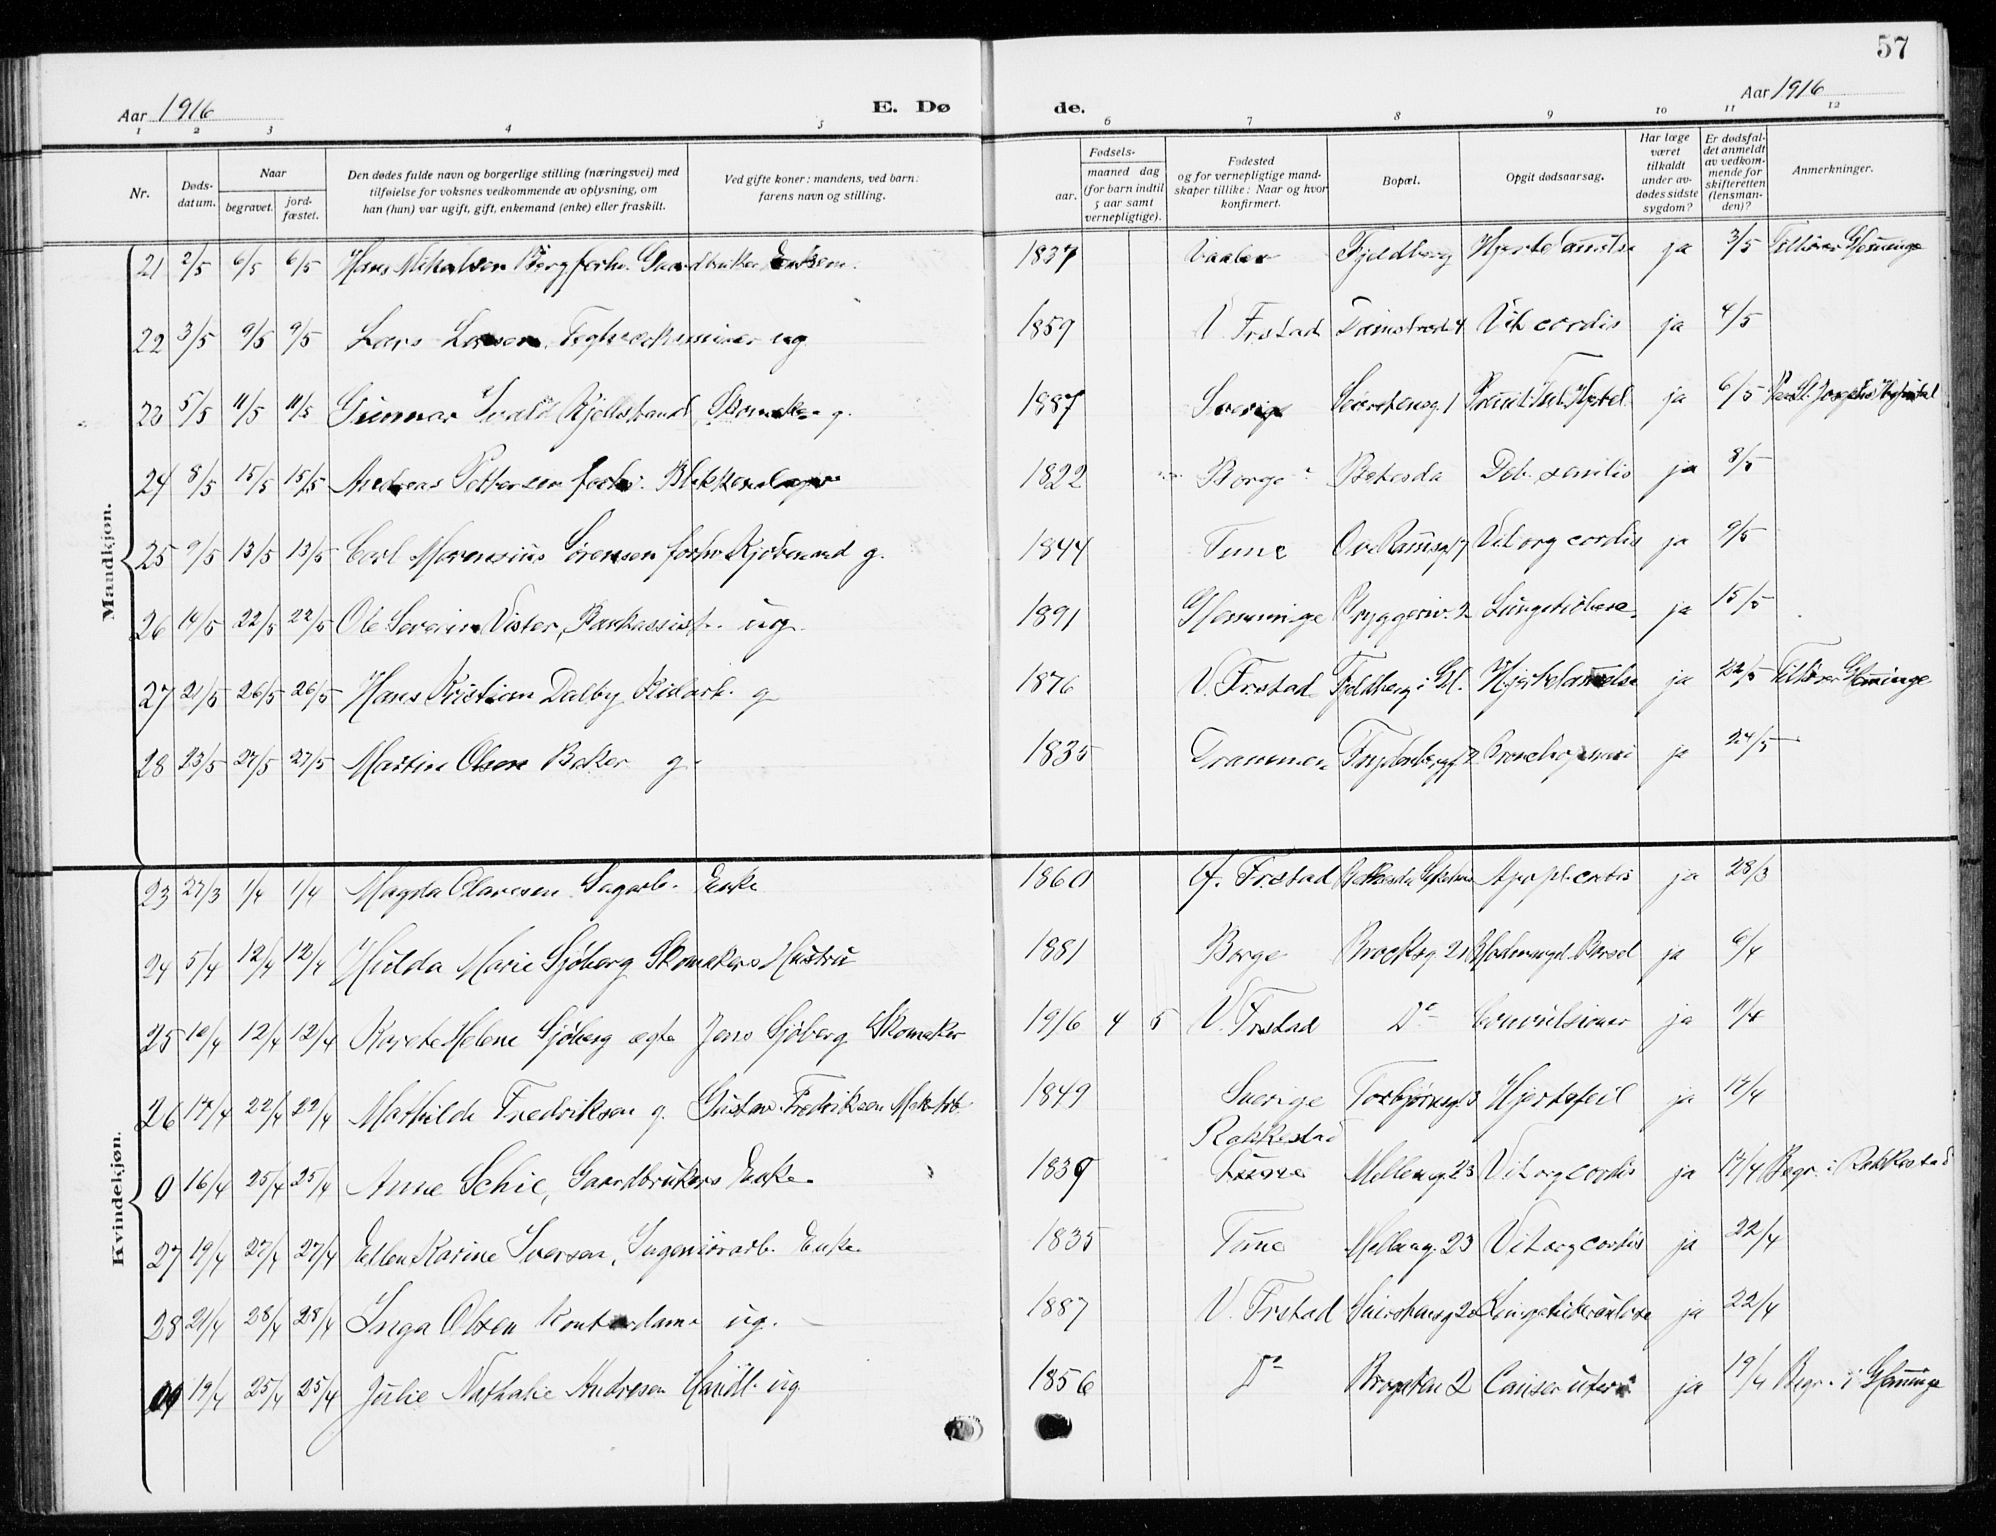 57
Aar 1916
E. Dø
de.
Aar 1916
1 2 3 4 5 6 7 8 9 10 11 12
Nr.
Døds-
datum.
Naar
begravet.
jord-
fæstet.
Den dødes fulde navn og borgerlige stilling (næringsvei) med
tilføielse for voksnes vedkommende av oplysning, om
han (hun) var ugift, gift, enkemand (enke) eller fraskilt.
Ved gifte koner: mandens, ved barn:
farens navn og stilling.
Fødsels-
aar.
maaned dag
(for barn indtil
5 aar samt
vernepligtige).
Fødested
og for vernepligtige mand-
skaper tillike: Naar og hvor
konfirmert.
Bopæl.
Opgit dødsaarsag.
Har læge
været
tilkaldt
under av-
dødes sidste
sygdom?
Er dødsfal-
det anmeldt
av vedkom-
mende for
skifteretten
(lensman-
den)?
Anmerkninger.
Mandkjøn.
21 2/5 6/5 6/5 Hans Mikalsen Berg forhv. Gaardbruker Enkem. 1837 Vaaler Fjeldberg Hjertelamelse ja 3/5 Tilhører Glemminge
22 3/5 9/5 9/5 Lars Larsen ug 1859 V. Frstad Damstredet 4 Vit cordis ja 4/5
23 5/5 11/5 11/5 Gunnar Kjellstrand, Skomaker g. 1887 Sverige ja 6/5
24 8/5 15/5 15/5 Andreas Pettersen forhv. Blikkenslager 1822 Borge Betesda Deb. senilis ja 8/5
25 9/5 13/5 13/5 Carl Marensius Sørensen forhv Kjøbmand g. 1844 Tune Ove Ramsg 17 Vit org cordis ja 9/5
26 14/5 22/5 22/5 Ole Severin Vister, Bankassist. ug. 1891 Glemminge Bryggeriv. 2 ja 15/5
27 21/5 26/5 26/5 Hans Kristian Dalby g 1876 V. Frstad Fjeldberg i Gl. Hjertelamelse ja 22/5 Tilhører Glemminge
28 23/5 27/5 27/5 Martin Olsen Baker g. 1835 Drammen ja 24/5
Kvindekjøn.
23 27/3 1/4 1/4 Magda Olavesen Sagarb. Enke 1860 Frstad ja 28/3
24 5/4 12/4 12/4 Hulda Marie Sjøberg Skomakers Hustru 1881 Borge Brochsg 21 ja 6/4
25 10/4 12/4 12/4 Karete Helene Sjøberg ægte Jens Sjøberg Skomaker 1916 4 5 V. Frstad Do Convulsioner ja 11/4
26 14/4 22/4 22/4 Mathilde Fredriksen g. Gustav Fredriksen Mek Arb. 1849 Sverige Torbjørnsg. 3 Hjertefeil ja 17/4
Rakkestad
0 16/4 25/4 25/4 Anne Schie, Gaardbrukers Enke. 1839 Tune Melleng. 23 Vit org cordis ja 17/4 Begr. i Rakkestad
27 19/4 27/4 27/4 Ellen Karine Iversen, Enke. 1835 Tune Melleng. 23 Vit org cordis ja 22/4
28 21/4 28/4 28/4 Inga Olsen Kontordame ug. 1887 V. Frstad Lungetuberkulose ja 22/4
0 19/4 25/4 25/4 Julie Nathalie Andresen Handl. ug 1856 Do Brogaten 2 Canser uteri ja 19/4 Begr. i Glemminge